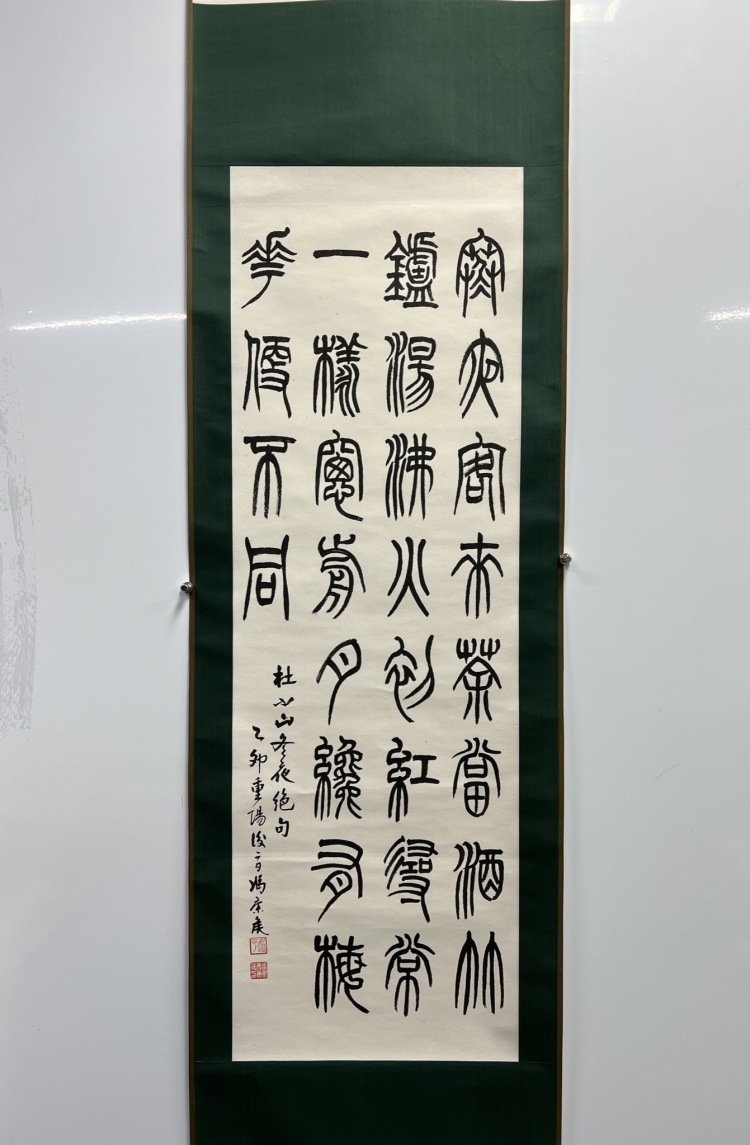 寒夜客來茶當酒竹
鑪湯沸火初紅尋常
一樣窻前月纔有梅
花便不同
杜小山冬夜絶句
乙卯重陽後二日馮康侯